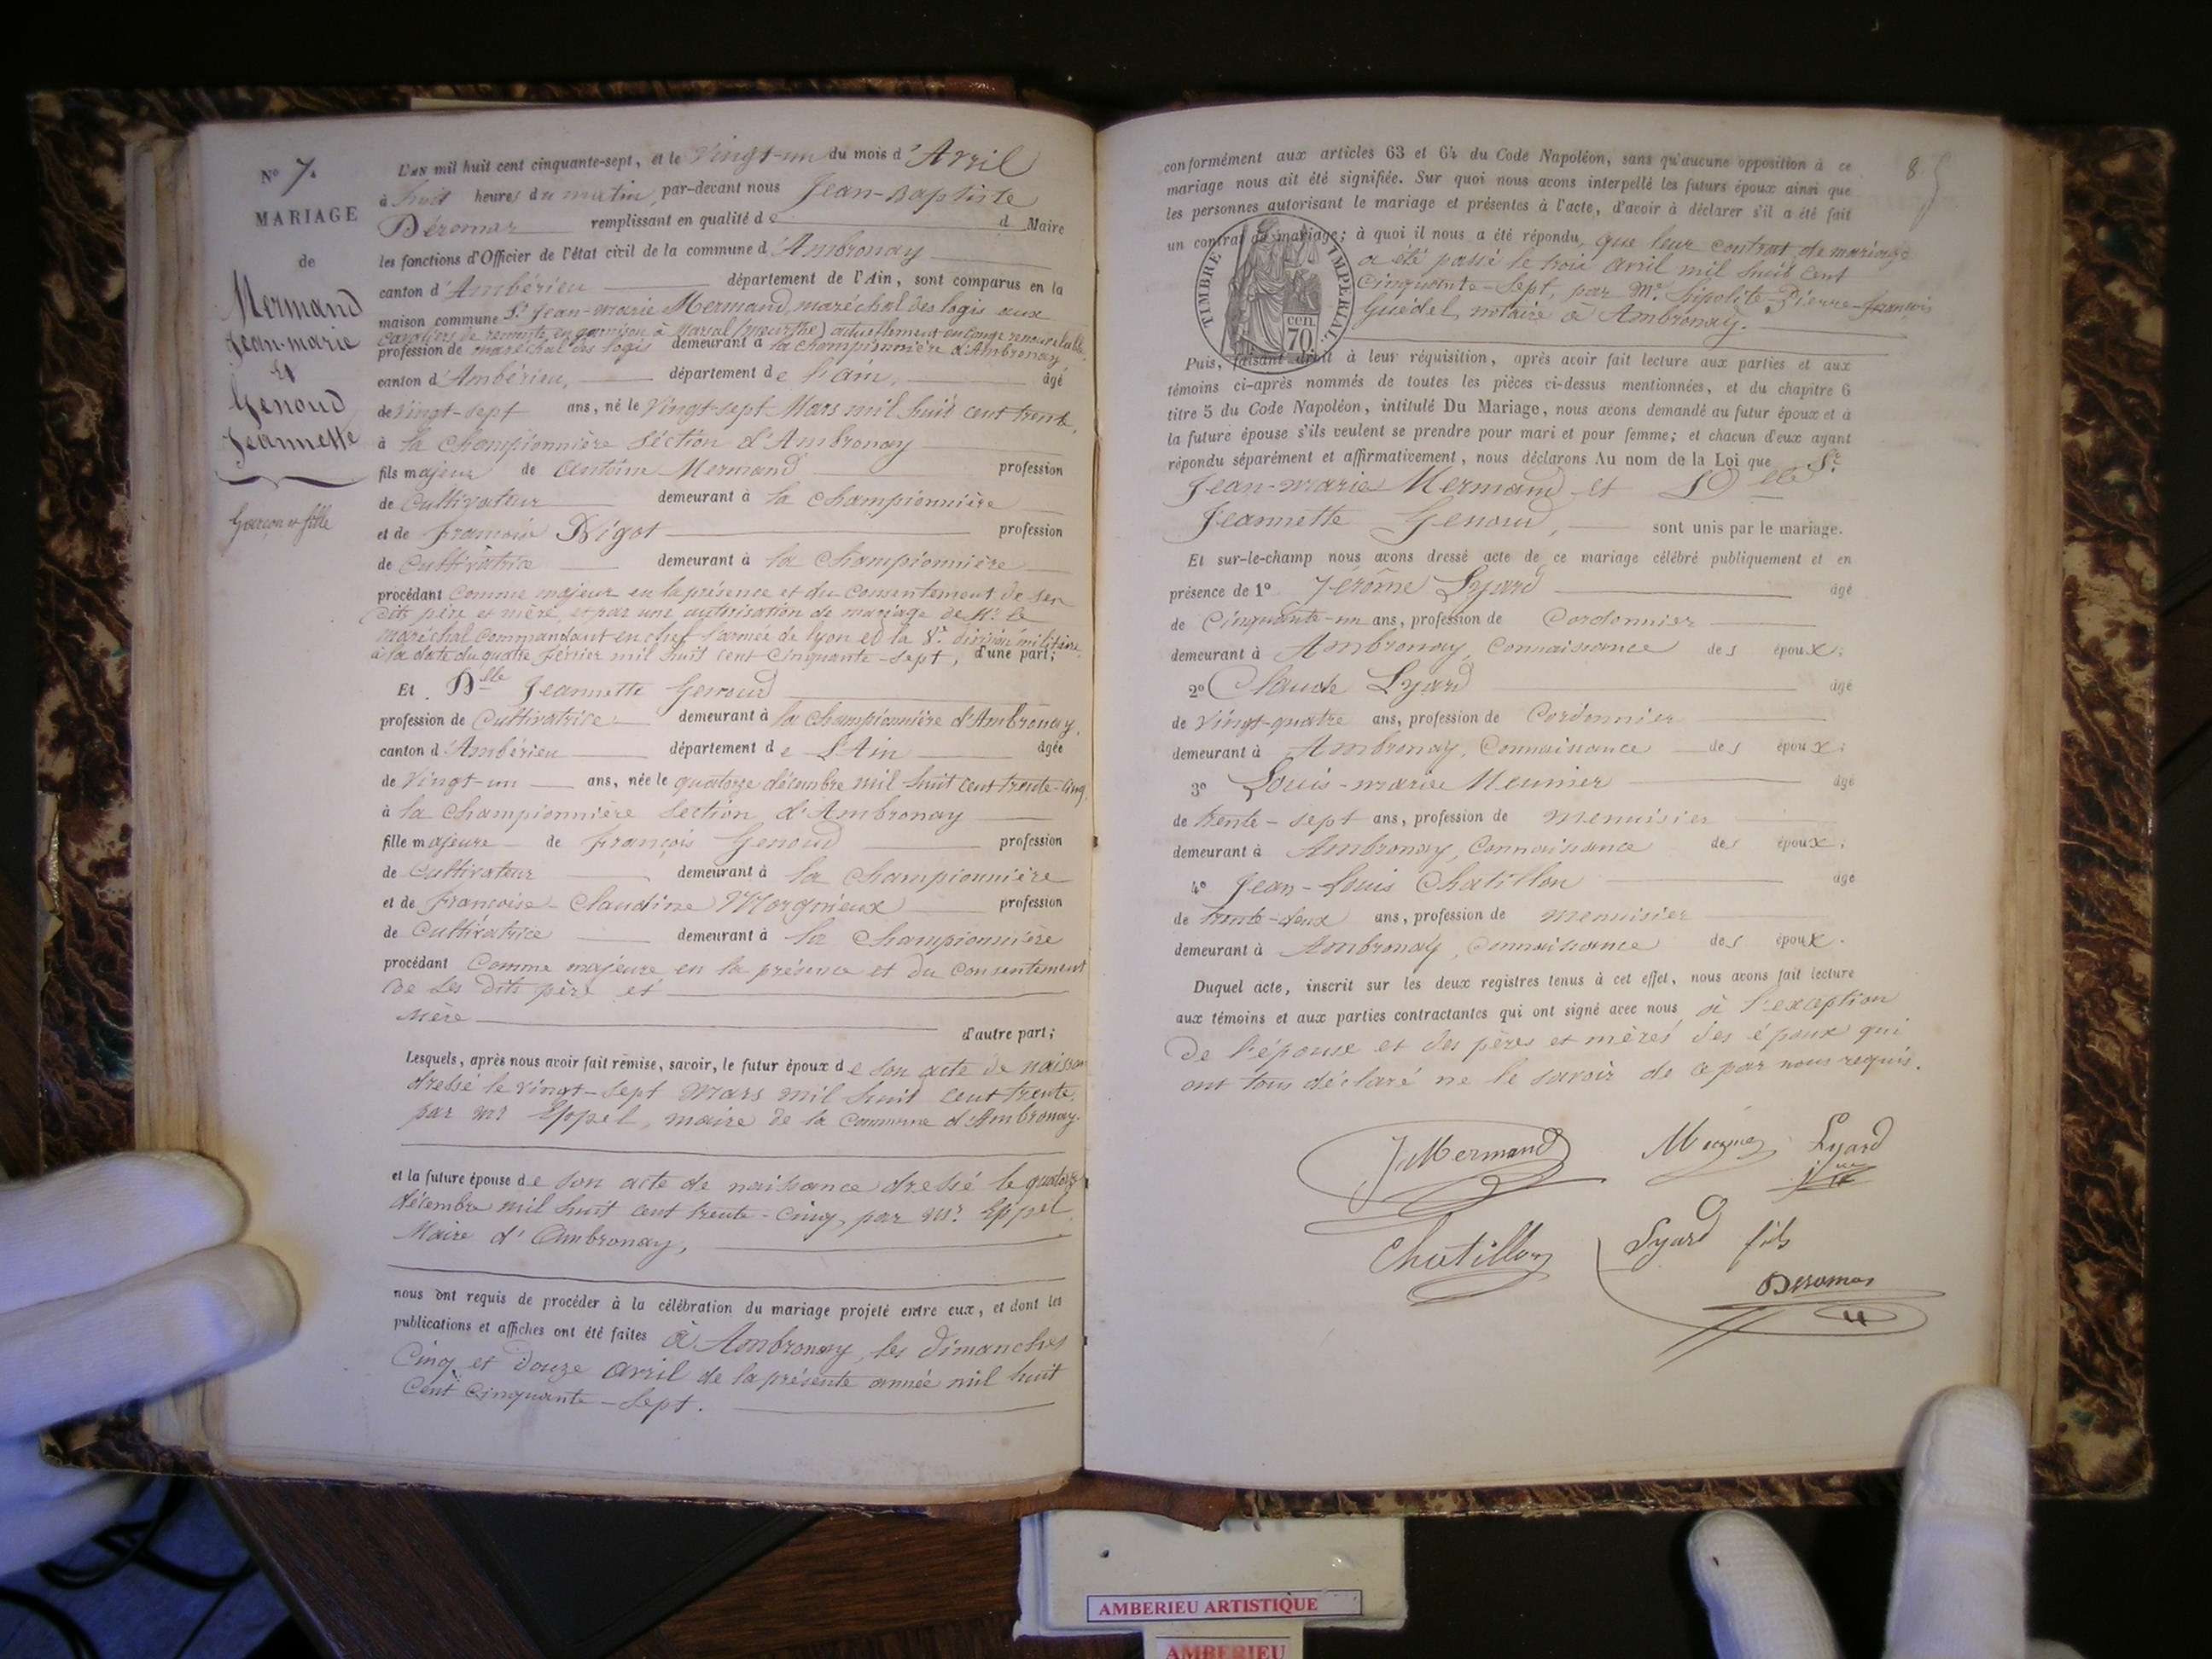 N° 7.
MARIAGE
de
Mermand
Jean-marie
et
Genoud
Jeannette
Garçon et fille
L'AN mil huit cent cinquante-sept, et le Vingt-un du mois d'Avril
à huit heures du matin, par-devant nous Jean-Baptiste
Déromas remplissant en qualité de d Maire
les fonctions d'Officier de l'état civil de la commune d'Ambronay
canton d'Ambérieu département de l'Ain, sont comparus en la
maison commune Sr Jean-marie Mermand, maréchal des logis aux
cavaliers de remonte, en garnison à Marsal (Meurthe) actuellement en congé renouvelable,
profession de maréchal des logis demeurant à la championnière d'Ambronay
canton d'Ambérieu, département de l'ain, âgé
de Vingt-sept ans, né le Vingt-sept Mars mil huit cent trente,
à la Championnière section d'Ambronay
fils majeur de Antoine Mermand profession
de Cultivateur demeurant à la championnière
et de Françoise Bigot profession
de Cultivatrice demeurant à la Championnière
procédant Comme majeur en la présence et du Consentement de ses
dits père et mère, et par une autorisation de mariage de Mr le
maréchal Commandant en chef l'armée de lyon et la 8e division militaire
à la date du quatre février mil huit cent cinquante-sept, d'une part;
Et Dlle Jeannette Genoud
profession de Cultivatrice demeurant à la Championnière d'Ambronay,
canton d'Ambérieu département de L'Ain âgée
de Vingt-un ans, née le quatorze décembre mil huit cent trente-cinq,
à la Championnière section d'Ambronay
fille majeure de François Genoud profession
de Cultivateur demeurant à la Championnière
et de Françoise-Claudine Morgnieux profession
de Cultivatrice demeurant à la Championnière
procédant Comme majeure en la présence et du Consentement
de ses dits père et
mère d'autre part;
Lesquels, après nous avoir fait remise, savoir, le futur époux de son acte de naissan
dressé le vingt-sept mars mil huit cent trente,
par mr Eppel, maire de la Commune d'Ambronay.
et la future épouse de son acte de naissance dressé le quatorze
décembre mil huit cent trente-cinq, par mr. Eppel
Maire d'Ambronay,
nous ont requis de procéder à la célébration du mariage projeté entre eux, et dont les
publications et affiches ont été faites à Ambronay, les dimanches
Cinq et Douze avril de la présente année mil huit
cent cinquante-sept.
8
conformément aux articles 63 et 64 du Code Napoléon, sans qu'aucune opposition à ce
mariage nous ait été signifiée. Sur quoi nous avons interpellé les futurs époux ainsi que
les personnes autorisant le mariage et présentes à l'acte, d'avoir à déclarer s'il a été fait
un contrat de mariage; à quoi il nous a été répondu, que leur contrat de mariage
a été passé le trois avril mil huit cent
Cinquante-sept, par Me. hipolite-Pierre-françois
Guédel, notaire à Ambronay.
TIMBRE IMPERIAL
70 cen.
Puis, faisant droit à leur réquisition, après avoir fait lecture aux parties et aux
témoins ci-après nommés de toutes les pièces ci-dessus mentionnées, et du chapitre 6
titre 5 du Code Napoléon, intitulé Du Mariage, nous avons demandé au futur époux et à
la future épouse s'ils veulent se prendre pour mari et pour femme; et chacun d'eux ayant
répondu séparément et affirmativement, nous déclarons Au nom de la Loi que Sr
Jean-marie Mermand et Dlle
Jeannette Genoud, sont unis par le mariage.
Et sur-le-champ nous avons dressé acte de ce mariage célébré publiquement et en
présence de 1° Jérôme Lyard âgé
de Cinquante-un ans, profession de Cordonnier
demeurant à Ambronay, Connaissance des époux;
2° Claude Lyard âgé
de Vingt-quatre ans, profession de Cordonnier
demeurant à Ambronay, Connaissance des époux;
3° Louis-marie Meunier âgé
de trente-sept ans, profession de menuisier
demeurant à Ambronay, Connaissance des époux;
4° Jean-Louis Chatillon âgé
de trente-deux ans, profession de menuisier
demeurant à Ambronay, Connaissance des époux.
Duquel acte, inscrit sur les deux registres tenus à cet effet, nous avons fait lecture
aux témoins et aux parties contractantes qui ont signé avec nous à l'exception
de l'épouse et des pères et mères des époux qui
ont tous déclaré ne le savoir de ce par nous requis.
JMermand Lyard
Chatillon Lyard fils
Deromas
AMBERIEU ARTISTIQUE
AMBERIEU